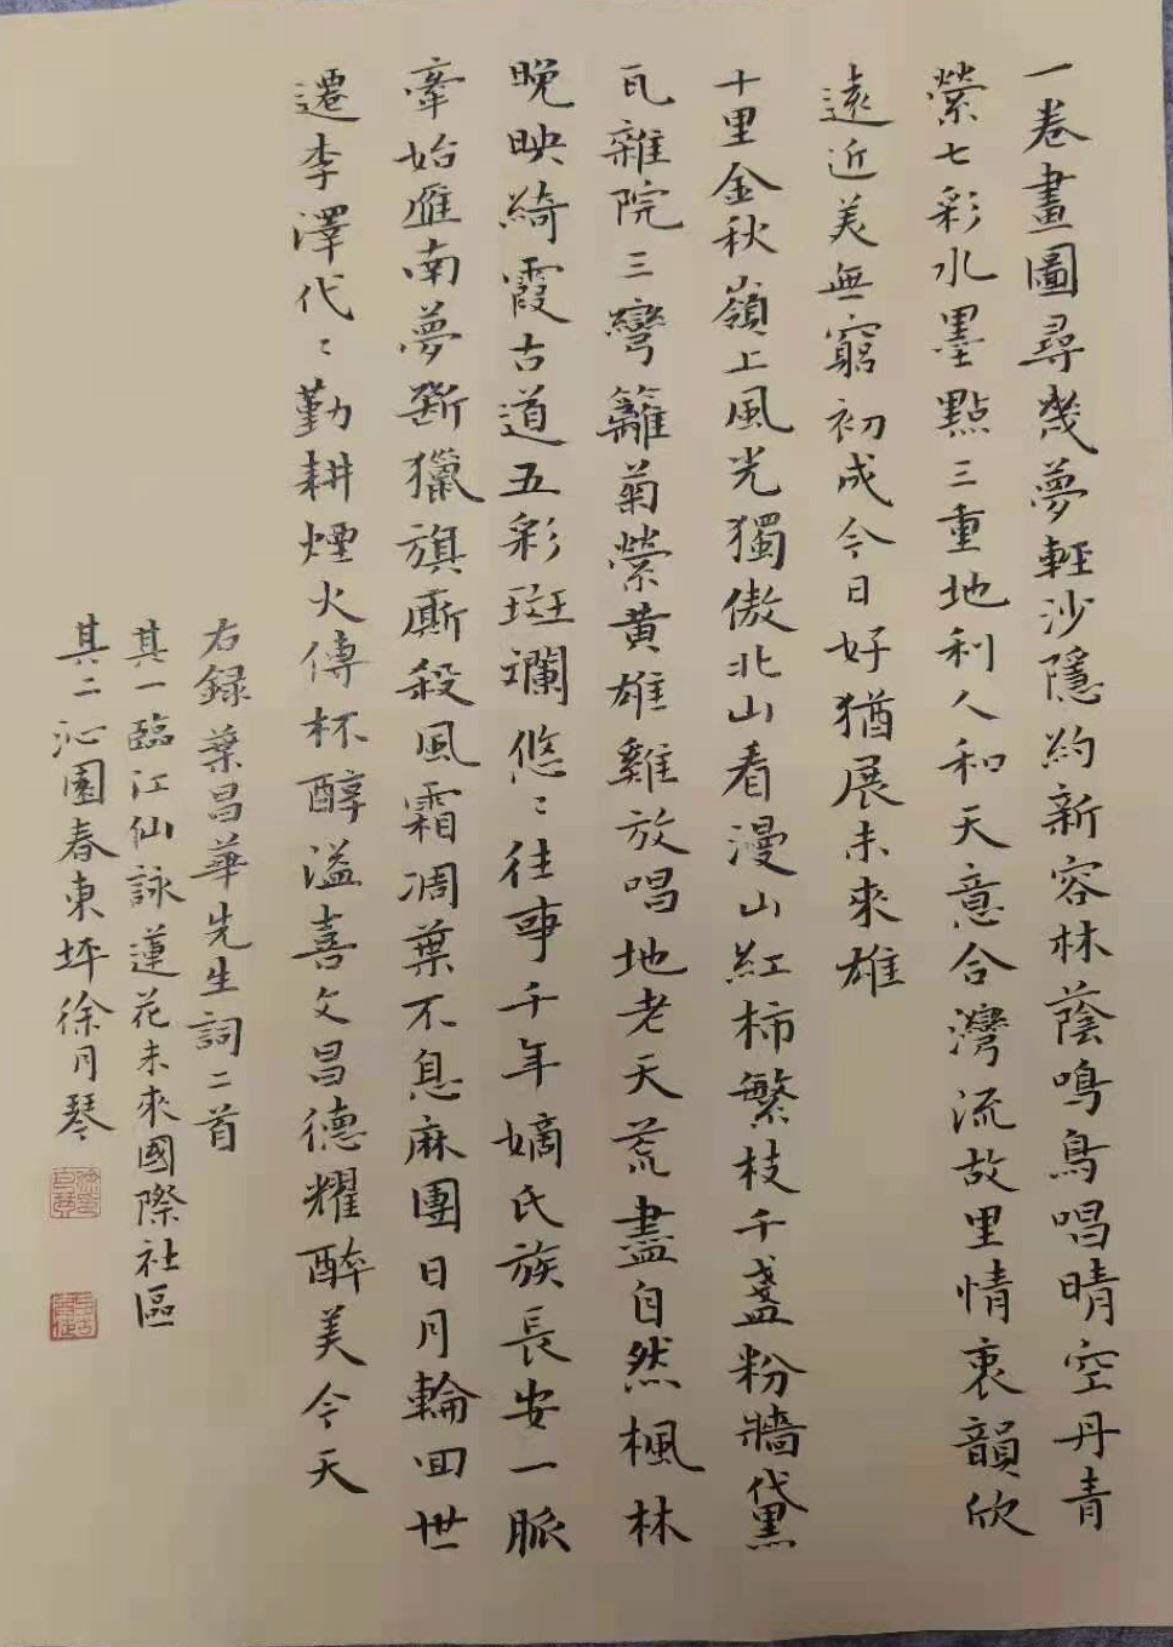 一卷畫圖尋幾夢輕沙隱約新容林蔭鳴鳥唱晴空丹青
縈七彩水墨點三重地利人和天意合灣流故里情衷韻欣
遠近美無窮初成今日好猶展未來雄
十里金秋嶺上風光獨傲北山看漫山紅柿繁枝千盞粉牆黛
瓦雜院三彎籬菊縈黃雄雞放唱地老天荒盡自然楓林
晚映綺霞古道五彩斑斕悠〻往事千年嫡氏族長安一脈
牽始雁南夢斷獵旗廝殺風霜凋葉不息麻團日月輪回世
遷李澤代〻勤耕煙火傳杯醇溢喜文昌德耀醉美今天
右録葉昌華先生詞二首
其一臨江仙詠蓮花未來國際社區
其二沁園春東坪徐月琴